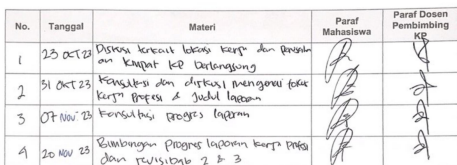 No. Tanggal Materi Paraf Mahasiswa Paraf Dosen Pembimbing KP
1 23 OKT 23 Diskusi terkait lokasi kerja dan
an KP berlangsung
2 31 OKT 23 Konsultasi dan diskusi mengenai
kerja Profesi & Judul laporan
3 07 NOV 23 Konsultasi progres laporan
4 20 NOV 23 Bimbingan Progres laporan kerja
dan revisi bab 2 & 3